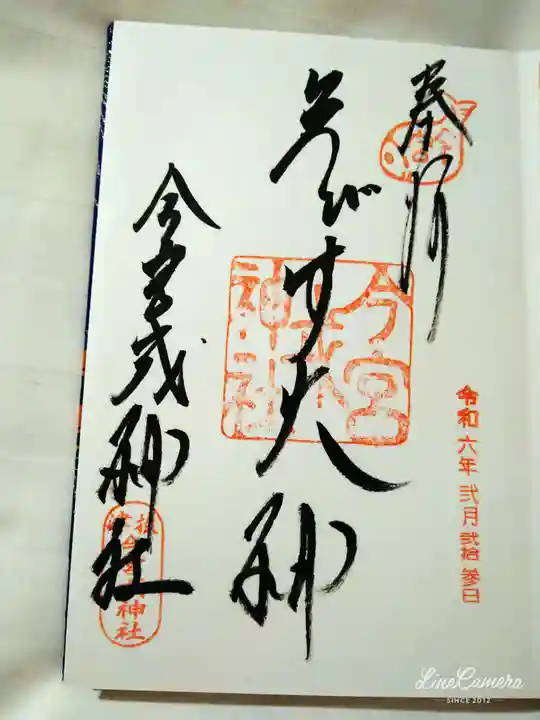 奉拝
令和六年 弐月 弐拾参日
えびす大神
今宮戎神社
今宮戎神社
LineCamera
SINCE 2012